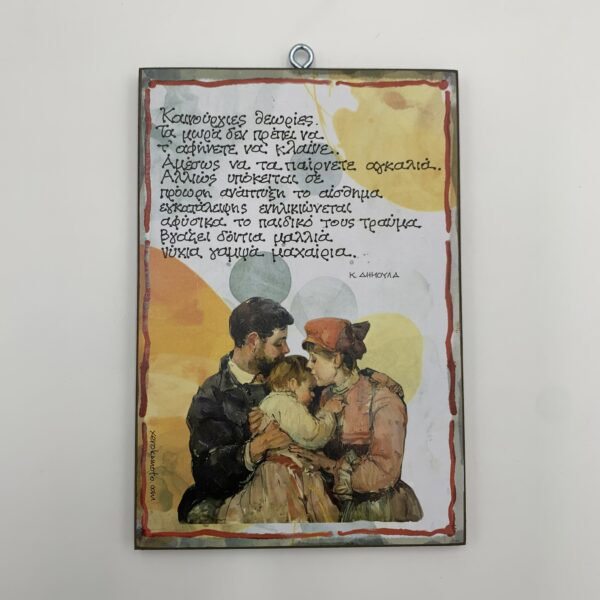 Καινούργιες θεωρίες.
Τα μωρά δεν πρέπει να
τ' αφήνετε να κλαίνε..
Αμέσως να τα παίρνετε αγκαλιά..
Αλλιώς υπόκειται σε
πρόωρη ανάπτυξη το αίσθημα
εγκατάλειψης ενηλικιώνεται
αφύσικα το παιδικό τους τραύμα
βγάζει δόντια μαλλιά
νύχια γαμψά μαχαίρια..
Κ. ΔΗΜΟΥΛΑ